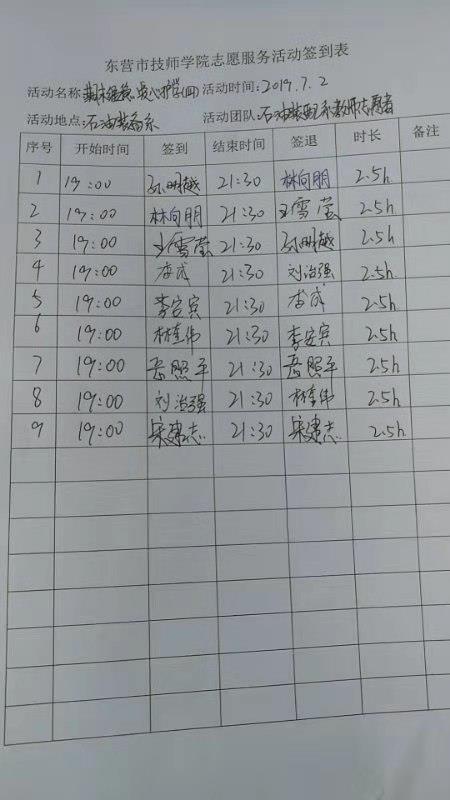 东营市技师学院志愿服务活动签到表
活动名称: 期末 爱心护学(四) 活动时间: 2019.7.2
活动地点: 石油装备系 活动团队: 石油装配系教师志愿者
序号 开始时间 签到 结束时间 签退 时长 备注
1 19:00 孙明越 21:30 林向朋 2.5h
2 19:00 林向朋 21:30 王雪莹 2.5h
3 19:00 王雪莹 21:30 孙明越 2.5h
4 19:00 李成 21:30 刘治强 2.5h
5 19:00 李安宾 21:30 李成 2.5h
6 19:00 林奎伟 21:30 李安宾 2.5h
7 19:00 岳照平 21:30 岳照平 2.5h
8 19:00 刘治强 21:30 林奎伟 2.5h
9 19:00 宋建志 21:30 宋建志 2.5h